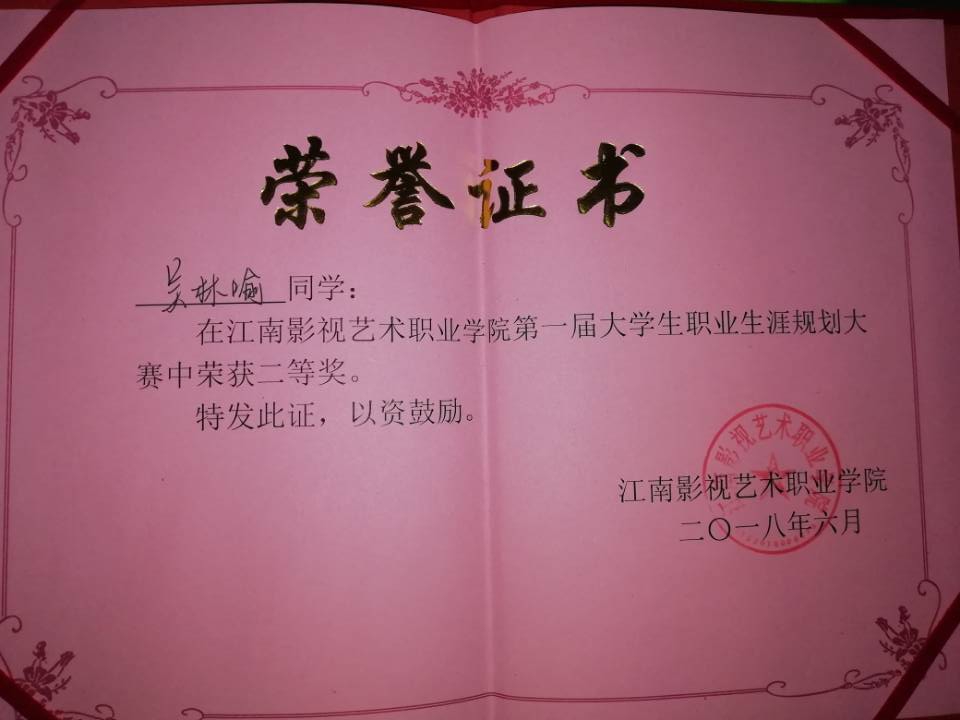 荣誉证书
吴林喻 同学：
在江南影视艺术职业学院第一届大学生职业生涯规划大
赛中荣获二等奖。
特发此证，以资鼓励。
江南影视艺术职业学院
二〇一八年六月